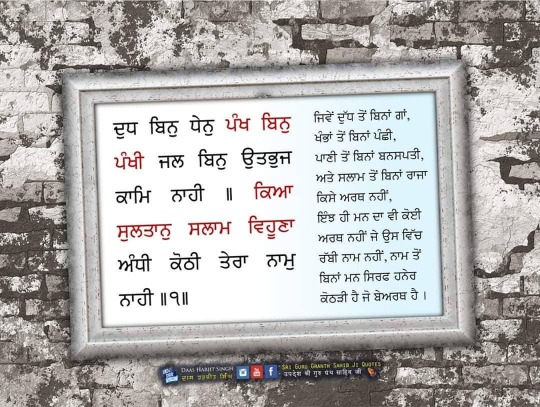 ਦੁਧ ਬਿਨੁ ਧੇਨੁ ਪੰਖ ਬਿਨੁ
ਪੰਖੀ ਜਲ ਬਿਨੁ ਉਤਭੁਜ
ਕਾਮਿ ਨਾਹੀ ॥ ਕਿਆ
ਸੁਲਤਾਨੁ ਸਲਾਮ ਵਿਹੂਣਾ
ਅੰਧੀ ਕੋਠੀ ਤੇਰਾ ਨਾਮੁ
ਨਾਹੀ ॥੧॥
ਜਿਵੇਂ ਦੁੱਧ ਤੋਂ ਬਿਨਾਂ ਗਾਂ,
ਖੰਭਾਂ ਤੋਂ ਬਿਨਾਂ ਪੰਛੀ,
ਪਾਣੀ ਤੋਂ ਬਿਨਾਂ ਬਨਸਪਤੀ,
ਅਤੇ ਸਲਾਮ ਤੋਂ ਬਿਨਾਂ ਰਾਜਾ
ਕਿਸੇ ਅਰਥ ਨਹੀਂ,
ਇੰਝ ਹੀ ਮਨ ਦਾ ਵੀ ਕੋਈ
ਅਰਥ ਨਹੀਂ ਜੇ ਉਸ ਵਿੱਚ
ਰੱਬੀ ਨਾਮ ਨਹੀਂ, ਨਾਮ ਤੋਂ
ਬਿਨਾਂ ਮਨ ਸਿਰਫ ਹਨੇਰ
ਕੋਠੜੀ ਹੈ ਜੋ ਬੇਅਰਥ ਹੈ ।
DAAS HARJIT SINGH
ਦਾਸ ਹਰਜੀਤ ਸਿੰਘ
SRI GURU GRANTH SAHIB JI QUOTES
ਉਪਦੇਸ਼ ਸ੍ਰੀ ਗੁਰੂ ਗ੍ਰੰਥ ਸਾਹਿਬ ਜੀ